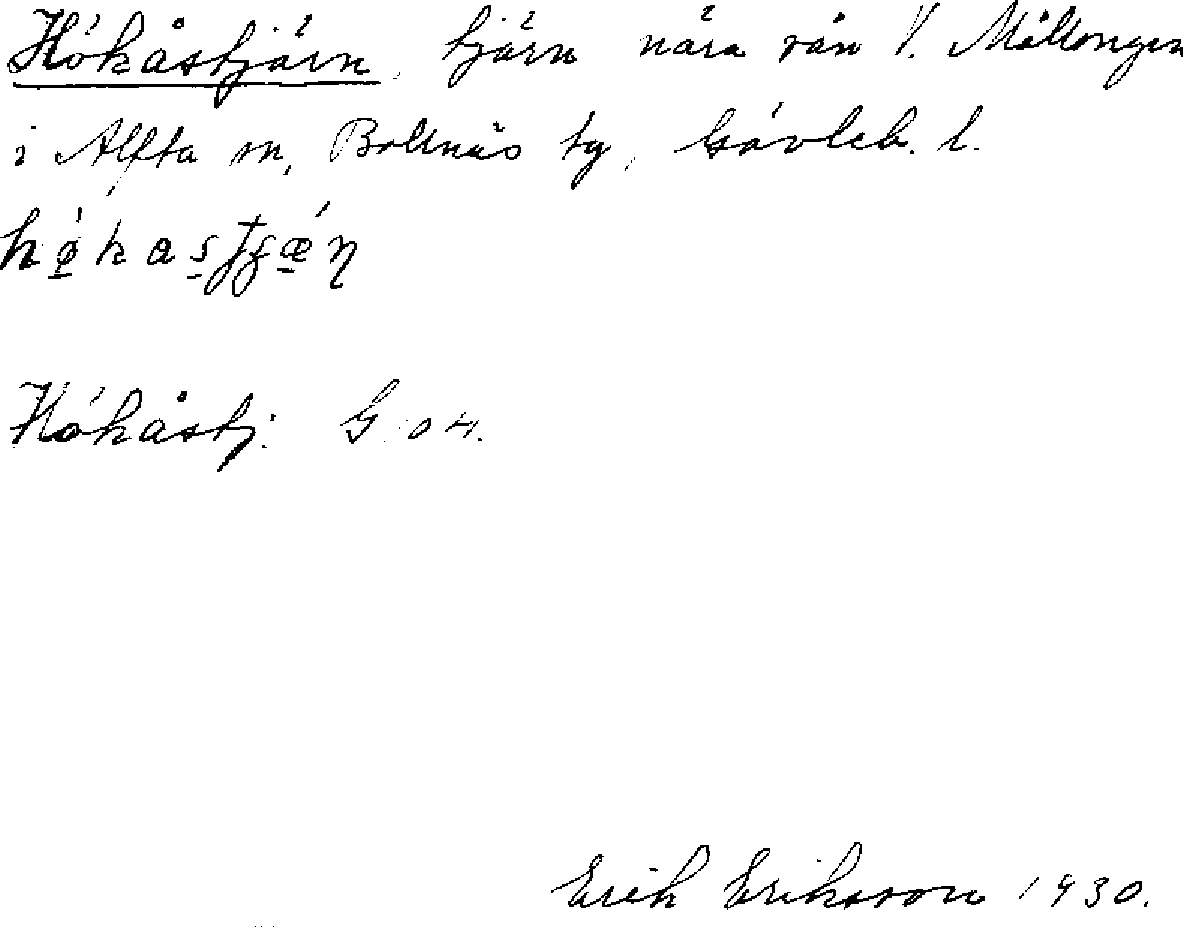 Hökåstjärn, tjärn nära rån V. Mållongen
i Alfta sn, Bollnäs tg, Gävleb. l.
Hökåstj. G 04.
Erik Eriksson 1930.